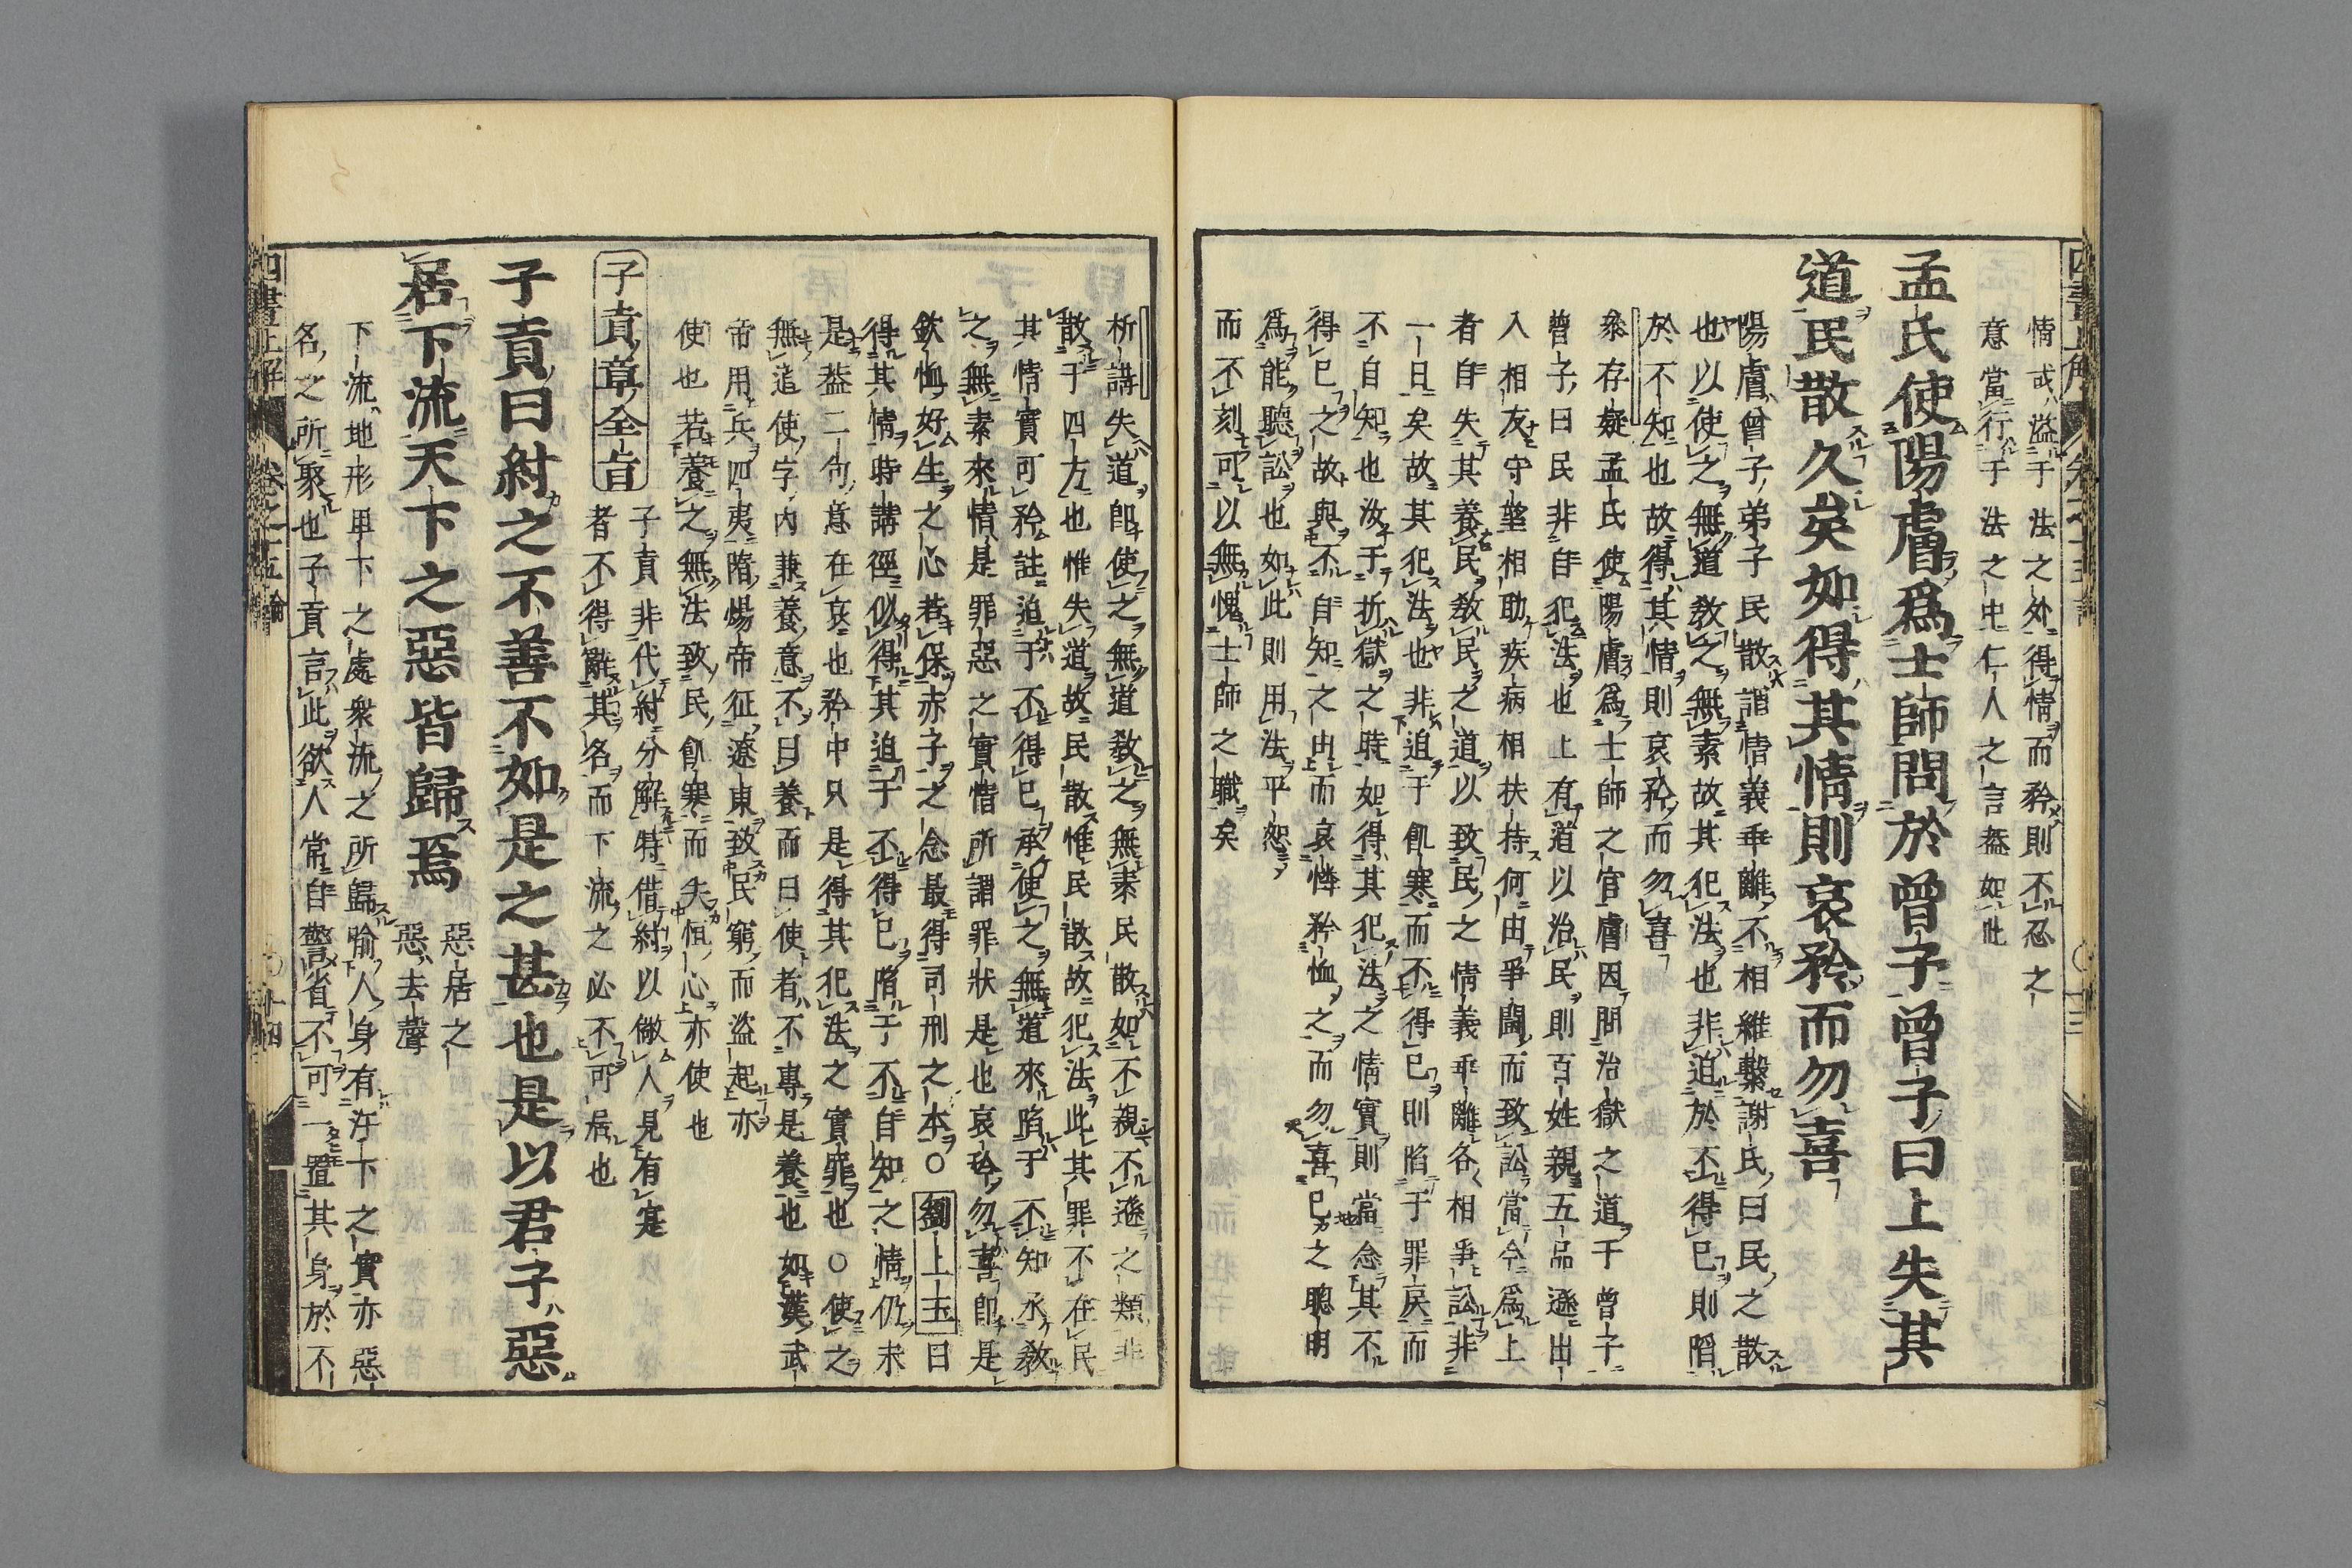 情或溢于法之外得情而矜則不忍之
意當行于法之中仁人之言蓋如此
孟氏使陽膚爲士師問於曾子曾子曰上失其
道民散久矣如得其情則哀矜而勿喜
陽膚曾子弟子民散謂情義乖離不相維繫謝氏曰民之散
也以使之無道敎之無素故其犯法也非迫於不得已則陷
於不知也故得其情則哀矜而勿喜
叅存疑孟氏使陽膚爲士師之官膚因問治獄之道于曾子
曾子曰民非自犯法也上有道以治民則百姓親五品遜出
入相友守望相助疾病相扶持何由爭鬪而致訟當今爲上
者自失其養民敎民之道以致民之情義乖離各相爭訟非
一日矣故其犯法也非迫于飢寒而不得已則陷于罪戾而
不自知也汝于折獄之時如得其犯法之情實則當念其不
得已之故與不自知之由而哀憐矜恤之而勿喜已之聰明
爲能聽訟也如此則用法平恕
而不刻可以無愧士師之職矣
析講失道卽使之無道敎之無素民散如不親不遜之類非
散于四方也惟失道故民散惟民散故犯法此其罪不在民
其情實可矜註迫于不得已承使之無道來陷于不知承敎
之無素來情是罪惡之實情所謂罪狀是也哀矜勿喜卽是
欽恤好生之心若保赤子之念最得司刑之本○劉上玉曰
得其情時講徑似得其迫于不得已陷于不自知之情仍未
是葢二句意在哀也矜中只是得其犯法之實罪也○使之
無道使字内兼養意不曰養而曰使者不專是養也如漢武
帝用兵四夷隋煬帝征遼東致民窮而盜起亦
使也若養之無法致民飢寒而失恒心亦使也
子貢章全旨
子貢非代紂分解特借紂以儆人見有寔
者不得辭其名而下流之必不可居也
子貢曰紂之不善不如是之甚也是以君子惡
居下流天下之惡皆歸焉
惡居之
惡去聲
下流地形卑下之處衆流之所歸喩人身有汙下之實亦惡
名之所聚也子貢言此欲人常自警省不可一置其身於不
四書正解
卷之十五論
十四